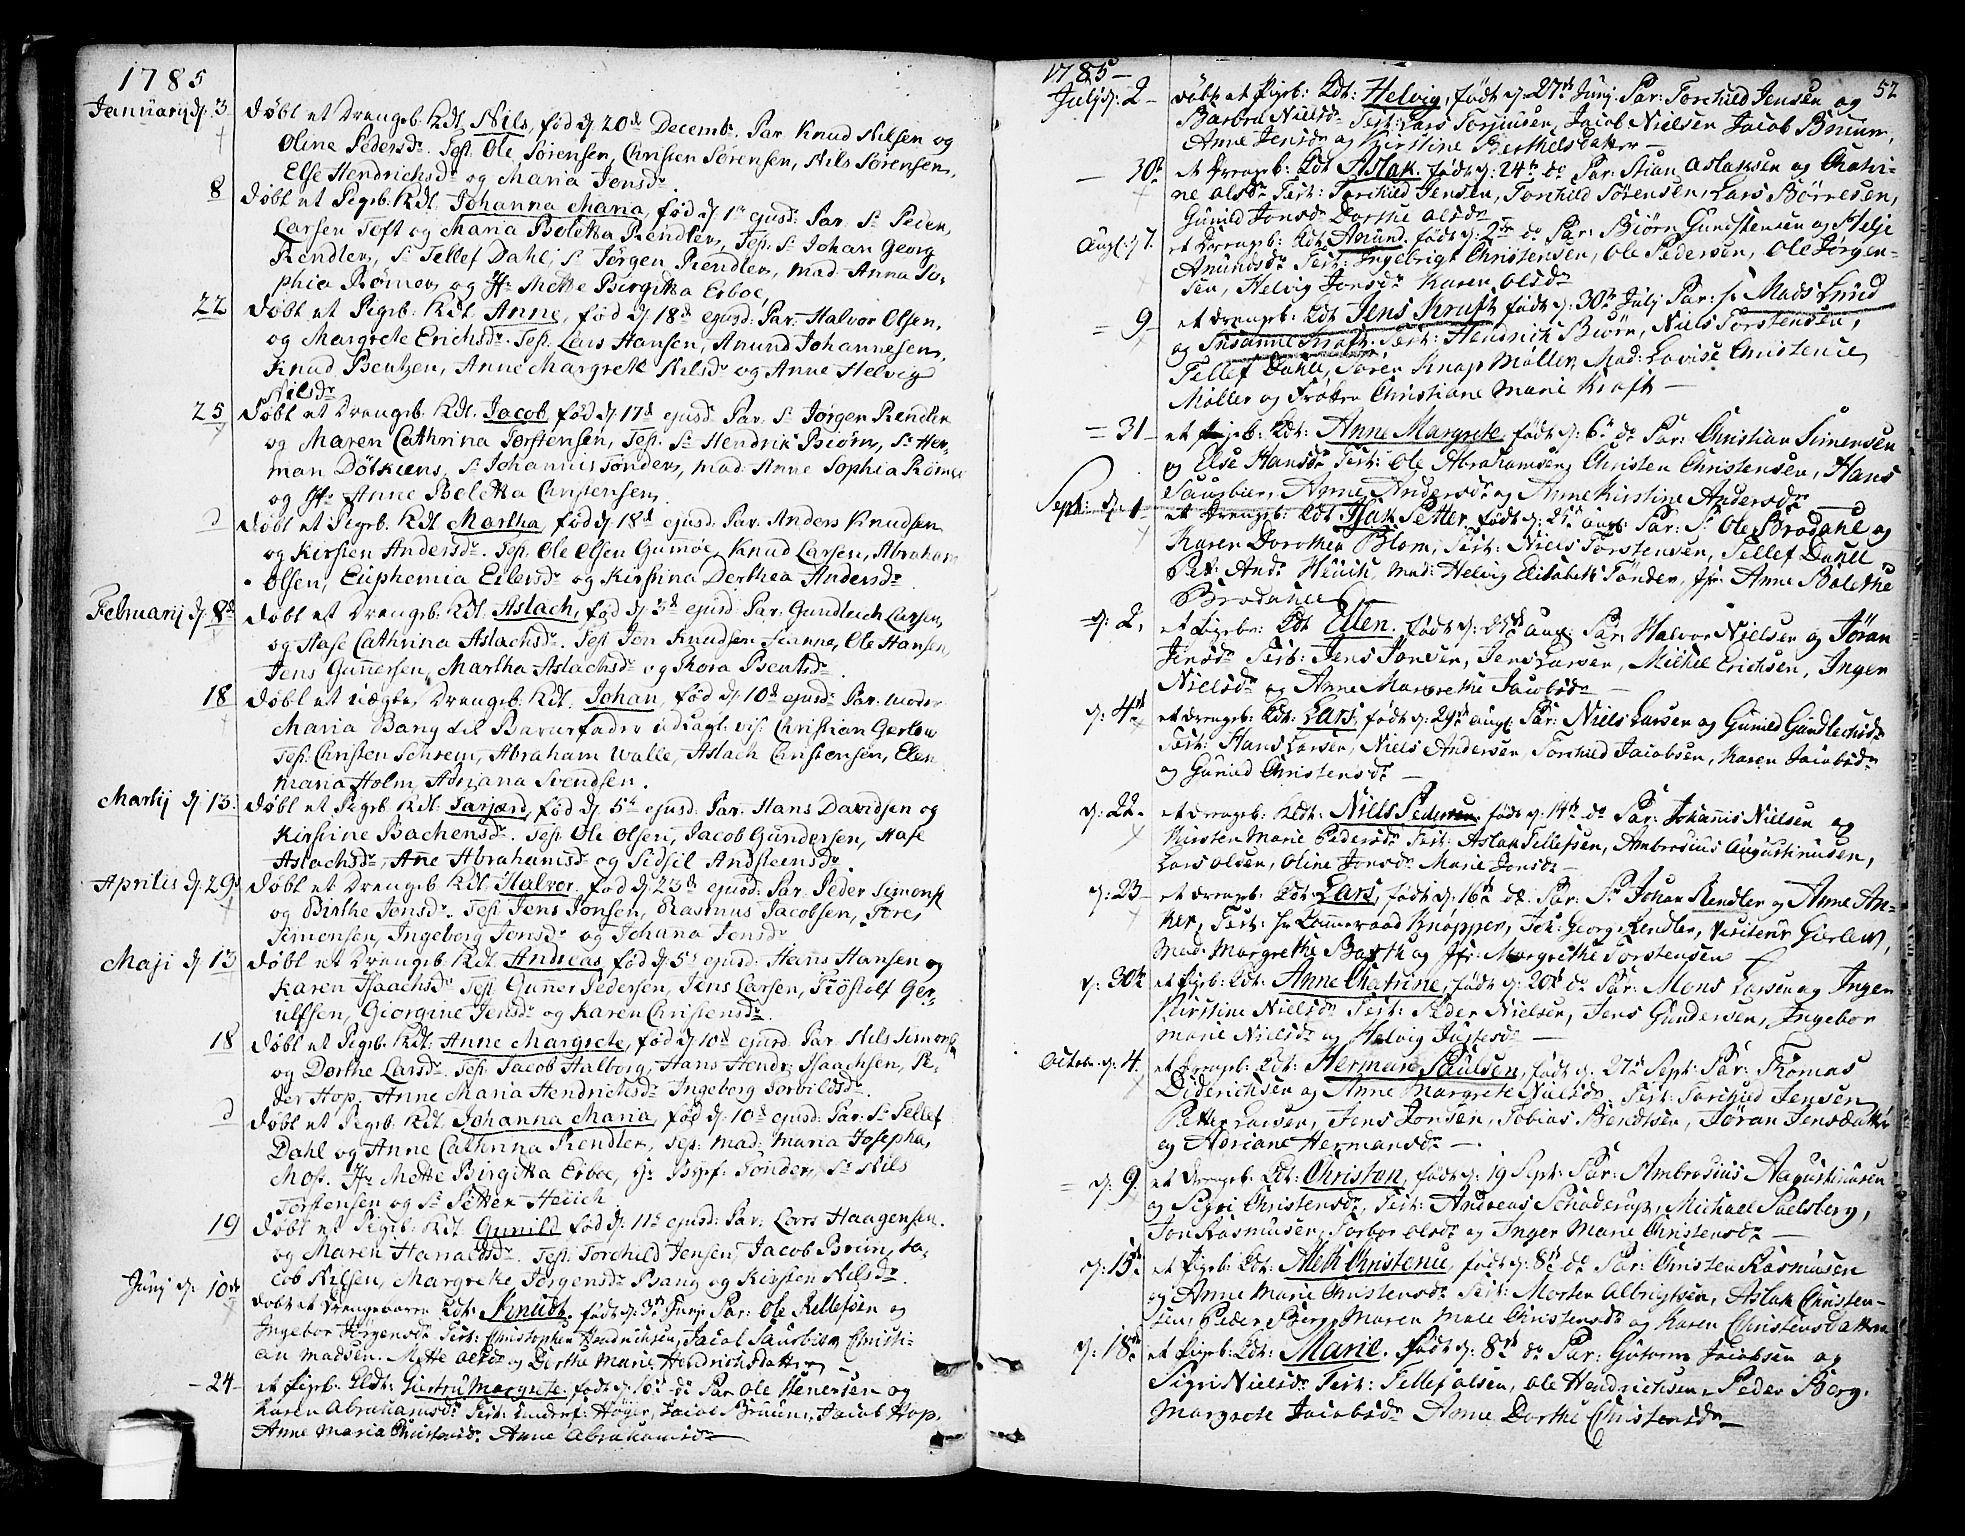 1785
Januarij d. 3 Døbt et Drengeb. Kdt. Nils, fød d. 20de Decembr. Par. Knud Nilsen og
Oline Pedersdr. Tesf. Ole Sørensen, Christen Sørensen, Nils Sørensen,
Else Hendrichsdr. og Maria Jonsdr.
8 Døbt et Pigeb. Kdt. Johanna Maria, fød d. 1te ejusd. Par. Sr. Peder
Larsen Toft og Maria Boletta Rendler, Tesf. Sr. Johan Georg
Rendler, Sr. Tellef Dahl, Sr. Jørgen Rendler, mad. Anna So-
phia Rømer og Jfr. Mette Birgitta Erboe.
22 Døbt et Pigeb. Kdt. Anne, fød d. 18de ejusd. Par. Halvor Olsen,
og Margrete Erichsdr. Tesf. Lars Hansen, Anund Johannesen,
Knud Bentzen, Anne Margrete Nilsdr. og Anne Helvig
Nilsdr.
25 Døbt et Drengeb. Kdt. Jacob fød d. 17de ejusd. Par. Sr. Jørgen Rendler
og Maren Cathrina Torstensen, Tesf. Sr. Hendrik Biørn, Sr. Her-
man Dötkiens, Sr. Johannis Tønder, mad. Anne Sophia Rømer
og Jfr. Anne Boletta Christensen.
d Døbt et Pigeb. Kdt. Martha, fød d. 18de ejusd. Par. Anders Knudsen
og Kirsten Andersdr. Tesf. Ole Olsen Gumøe, Knud Larsen, Abraham
Olsen, Euphemia Eilersdr. og Kirstina Derthea Andersdr.
Februarij d. 8de Døbt et Drengeb. Kdt. Aslach, fød d. 3de ejusd. Par. Gundleich Larsen,
og Hase Cathrina Aslachsdr. Tesf. Jon Knudsen Stanne, Ole Hansen,
Jens Gunnersen, Martha Aslachsdr. og Thora Bentsdr.
18 Døbt et uægte Drengeb. Kdt. Johan, fød d. 10de ejusd. Par. moder
Maria Bang til Barnefader udlagt vis. Christian Gerlow
Tesf. Christen Schrem, Abraham Walle, Aslach Christensen, Ellen
Maria Holm, Adrjana Svendsen.
Martij d. 13 Døbt et Pigeb. Kdt. Tarjærd, fød d. 5te ejusd. Par. Hans Davidsen og
Kirstine Bachensdr. Tesf. Ole Olsen, Jacob Gundersen, Hase
Aslachsdr. Anne Abrahamsd. og Sidsil Andsteensdr.
Aprilis d. 29 Døbt et Drengeb. Kdt. Halvor, fød d. 23de ejusd: Par. Peder Simons.
og Birthe Jonsdr. Tesf. Jens Jonsen, Rasmus Jacobsen, Tores
Simonsen, Ingeborg Jonsdr. og Johana Jensdr.
Maji d. 13 Døbt et Drengeb. Kdt. Andreas, fød d. 5te ejusd: Hans Hansen og
Karen Isaachsdr. Tesf. Gunner Pedersen, Jens Larsen, Trøstolf Ger-
ulfsen, Giorgine Jensdr. og Karen Christensdr.
18 Døbt et Pigeb. Kdt. Anne Margrete, fød d. 10de ejusd. Par. Nils Simons.
og Dorthe Larsdr. Tesf. Jacob Halborg, Hans Hendr. Isaachsen, Pe-
der Hop, Anne Maria Hendrichsdr. Ingeborg Torbildsdr.
d Døbt et Pigeb. Kdt. Johanna Maria, fød d. 10de ejusd: Par. Sr. Tellef
Dahl og Anne Cathrina Rendler, Tesf: mad: Maria Josepha
Moss. Jfr. Mette Birgitta Erboe, Tønder, Sr. Nils
Torstensen og Sr. Petter Heüich
19 Døbt et Pigeb. Kdt. Gunild fød d. 11te ejusd: Par. Lars Haagensen.
og Maren Haraldsdr. Tesf. Torchild Jensen, Jacob Brün, Ja-
cob Nilsen, Margrete Jørgensdr. Bang og Kirsten Nilsdr.
Junij d. 10de Døbt et Drengebarn Kdt: Knudt, født d. 3de Junij Par: Ole Kellefsen og
Ingebor Jørgensdr. Test: Christopher Hendrichsen, Jacob Sausbier, Christi-
an Madsen. Mette Olsdr. og Dorthe Marie Hendrichsdatter
24 et Pigeb: Kdt: Giertru Margrete, født d. 16de do Par Ole Henersen og
Karen Abrahamsdr Test: Høyer, Jacob Bruun, Jacob Hop,
Anne Maria Christensdr. Anne Abrahamsdr
1785 52
Julj d: 2 Døbt et Pigeb: Kdt: Helvig, født d. 27de Junj Par: Torchild Jensen og
Barbra Nielsdr Test: Lars Torjusen, Jacob Nielsen Jacob Bruun,
Anne Jensdr og Kirstine Berthelsdatter
30te et Drengeb: Kdt Aslak, født d: 24de do Par: Stian Aslaksen og Chatri-
ne Olsdr Test: Torchild Jensen, Torchild Sørensen, Lars Børresen,
Gunild Jonsdr Dorthe Olsdr
Augl: d 7. et Drengeb: Kdt Amund, født d. 2de do Par: Biørn Gundstensen og Helje
Amundsdr Test: Ingebrigt Christensen, Ole Pedersen, Ole Jørgen-
sen, Helvig Jonsdr Karen Olsdr
9 et Drengeb: Kdt Jens Kraft, født d. 30te Julj Par: Sr Mads Lund
og Susanne Kraft. Test: Hendrich Biørn, Niels Torstensen,
Tellef Dahl, Søren Knap Møller, Mad: Lovise Christence
Møller og Frøken Christiane Marie Kraft
31 et Pigeb: Kdt: Anne Margrete, født d: 6te do Par: Christian Simensen
og Else Hansdr Test: Ole Abrahamsen, Christen Christensen, Hans
Sausbier, Anne Andersdr og Anne Kirstine Andersdr
Sept: d. 1 et Drengeb: Kdt Isak Petter, født d: aug: Par: Sr Ole Brodahl og
Karen Dorothea Blom, Test: Niels Torstensen, Tellef Dahl
Pet: And: Heüch, mad: Helvig Elisabeth Tønder, jfr: Anne Bolethe
Brodahl
d: 2. et Pigeb: Kdt Ellen, født d: aug: Par: Halvor Nielsen og Jøran
Jensdr Test: Jens Jonsen, Jens Larsen, Michel Erichsen, Inger
Nielsdr og Anne Margrethe Jacobsdr
d: 4de et Drengeb: Kdt: Lars, født d: 29de augl Par: Niels Larsen og Gunild Gundlechsdr
Test: Hans Larsen, Niels Andersen, Torchild Jacobsen, Karen Jacobsdr
og Gunild Christensdr
d: 22. et Drengeb: Kdt: Niels Pedersen, født d: 14de do Par: Johannis Nielsen og
Kirsten Marie Pedersdr Test: Aslak Tellefsen, Ambrosius Augustinusen,
Lars Olsen, Oline Jonsdr Marie Jonsdr
d: 23 et Drengeb: Kdt: Lars, født d: 16de do Par: Sr Johan Rendler og Anne An-
ker, Test: Hr Knopper, Joh: George Rendler, Visiteur Gierlew,
Mad: Margrethe Barth og jfr: Margrethe Torstensen
d: 30te et Pigeb: Kdt: Anne Chatrine, født d: 20de do Par: Mons Larsen og Inger
Kirstine Nielsdr Test: Peder Nielsen, Jens Gundersen, Ingebor
Marie Nielsdr og Helvig Justesdr
Octobr d: 4. et Drengeb: Kdt: Hermann Paulsen, født d. 27de Sept: Par: Thomas
Diderichsen og Anne Margrete Nielsdr. Test: Torchild Jensen
Petter Larsen, Jens Jonsen, Tobias Bendtsen, Jøran Jensdatter
og Adriane Hermansdr
d: 9 et Drengeb: Kdt: Christen, født d: 19 Sept: Par: Ambrosius Augustinusen
og Sigri Christensdr, Test: Andreas Schaderup, Michael Sælsberg,
Jon Rasmusen, Torbor Olsdr og Inger Marie Christensdr
d: 15de et Pigeb: Kdt: Aleth Christence, født d: 8de do Par: Christen Rasmusen
og Anne Marie Christensdr Test: Morten Albrigtsen, Aslak Christen-
sen, Peder Berg, Maren Male Christensdr og Karen Christensdatter
d: 18de et Pigeb: Kdt: Marie, født d: 8de do Par: Gutorm Jacobsen og
Sigri Nielsdr Test: Tellef Olsen, Ole Hendrichsen, Peder Berg,
Margrete Jacobsdr Anne Dorthe Christensdr